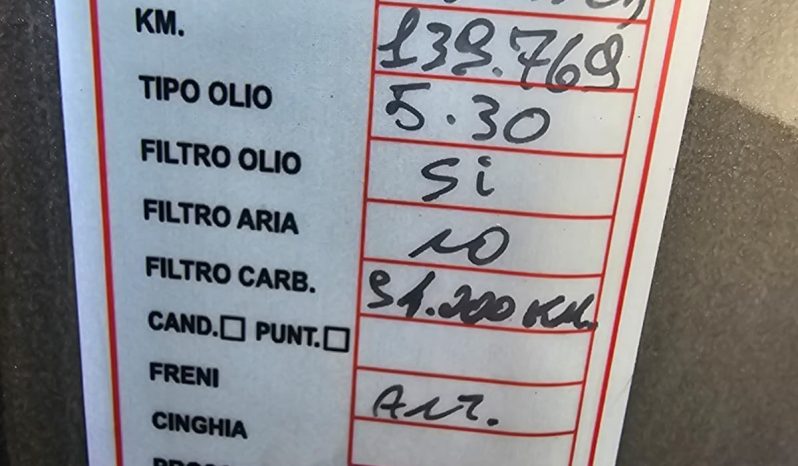 KM. 139.769
TIPO OLIO 5.30
FILTRO OLIO Si
FILTRO ARIA NO
FILTRO CARB. 91.200 KM.
CAND. PUNT.
FRENI ANT.
CINGHIA